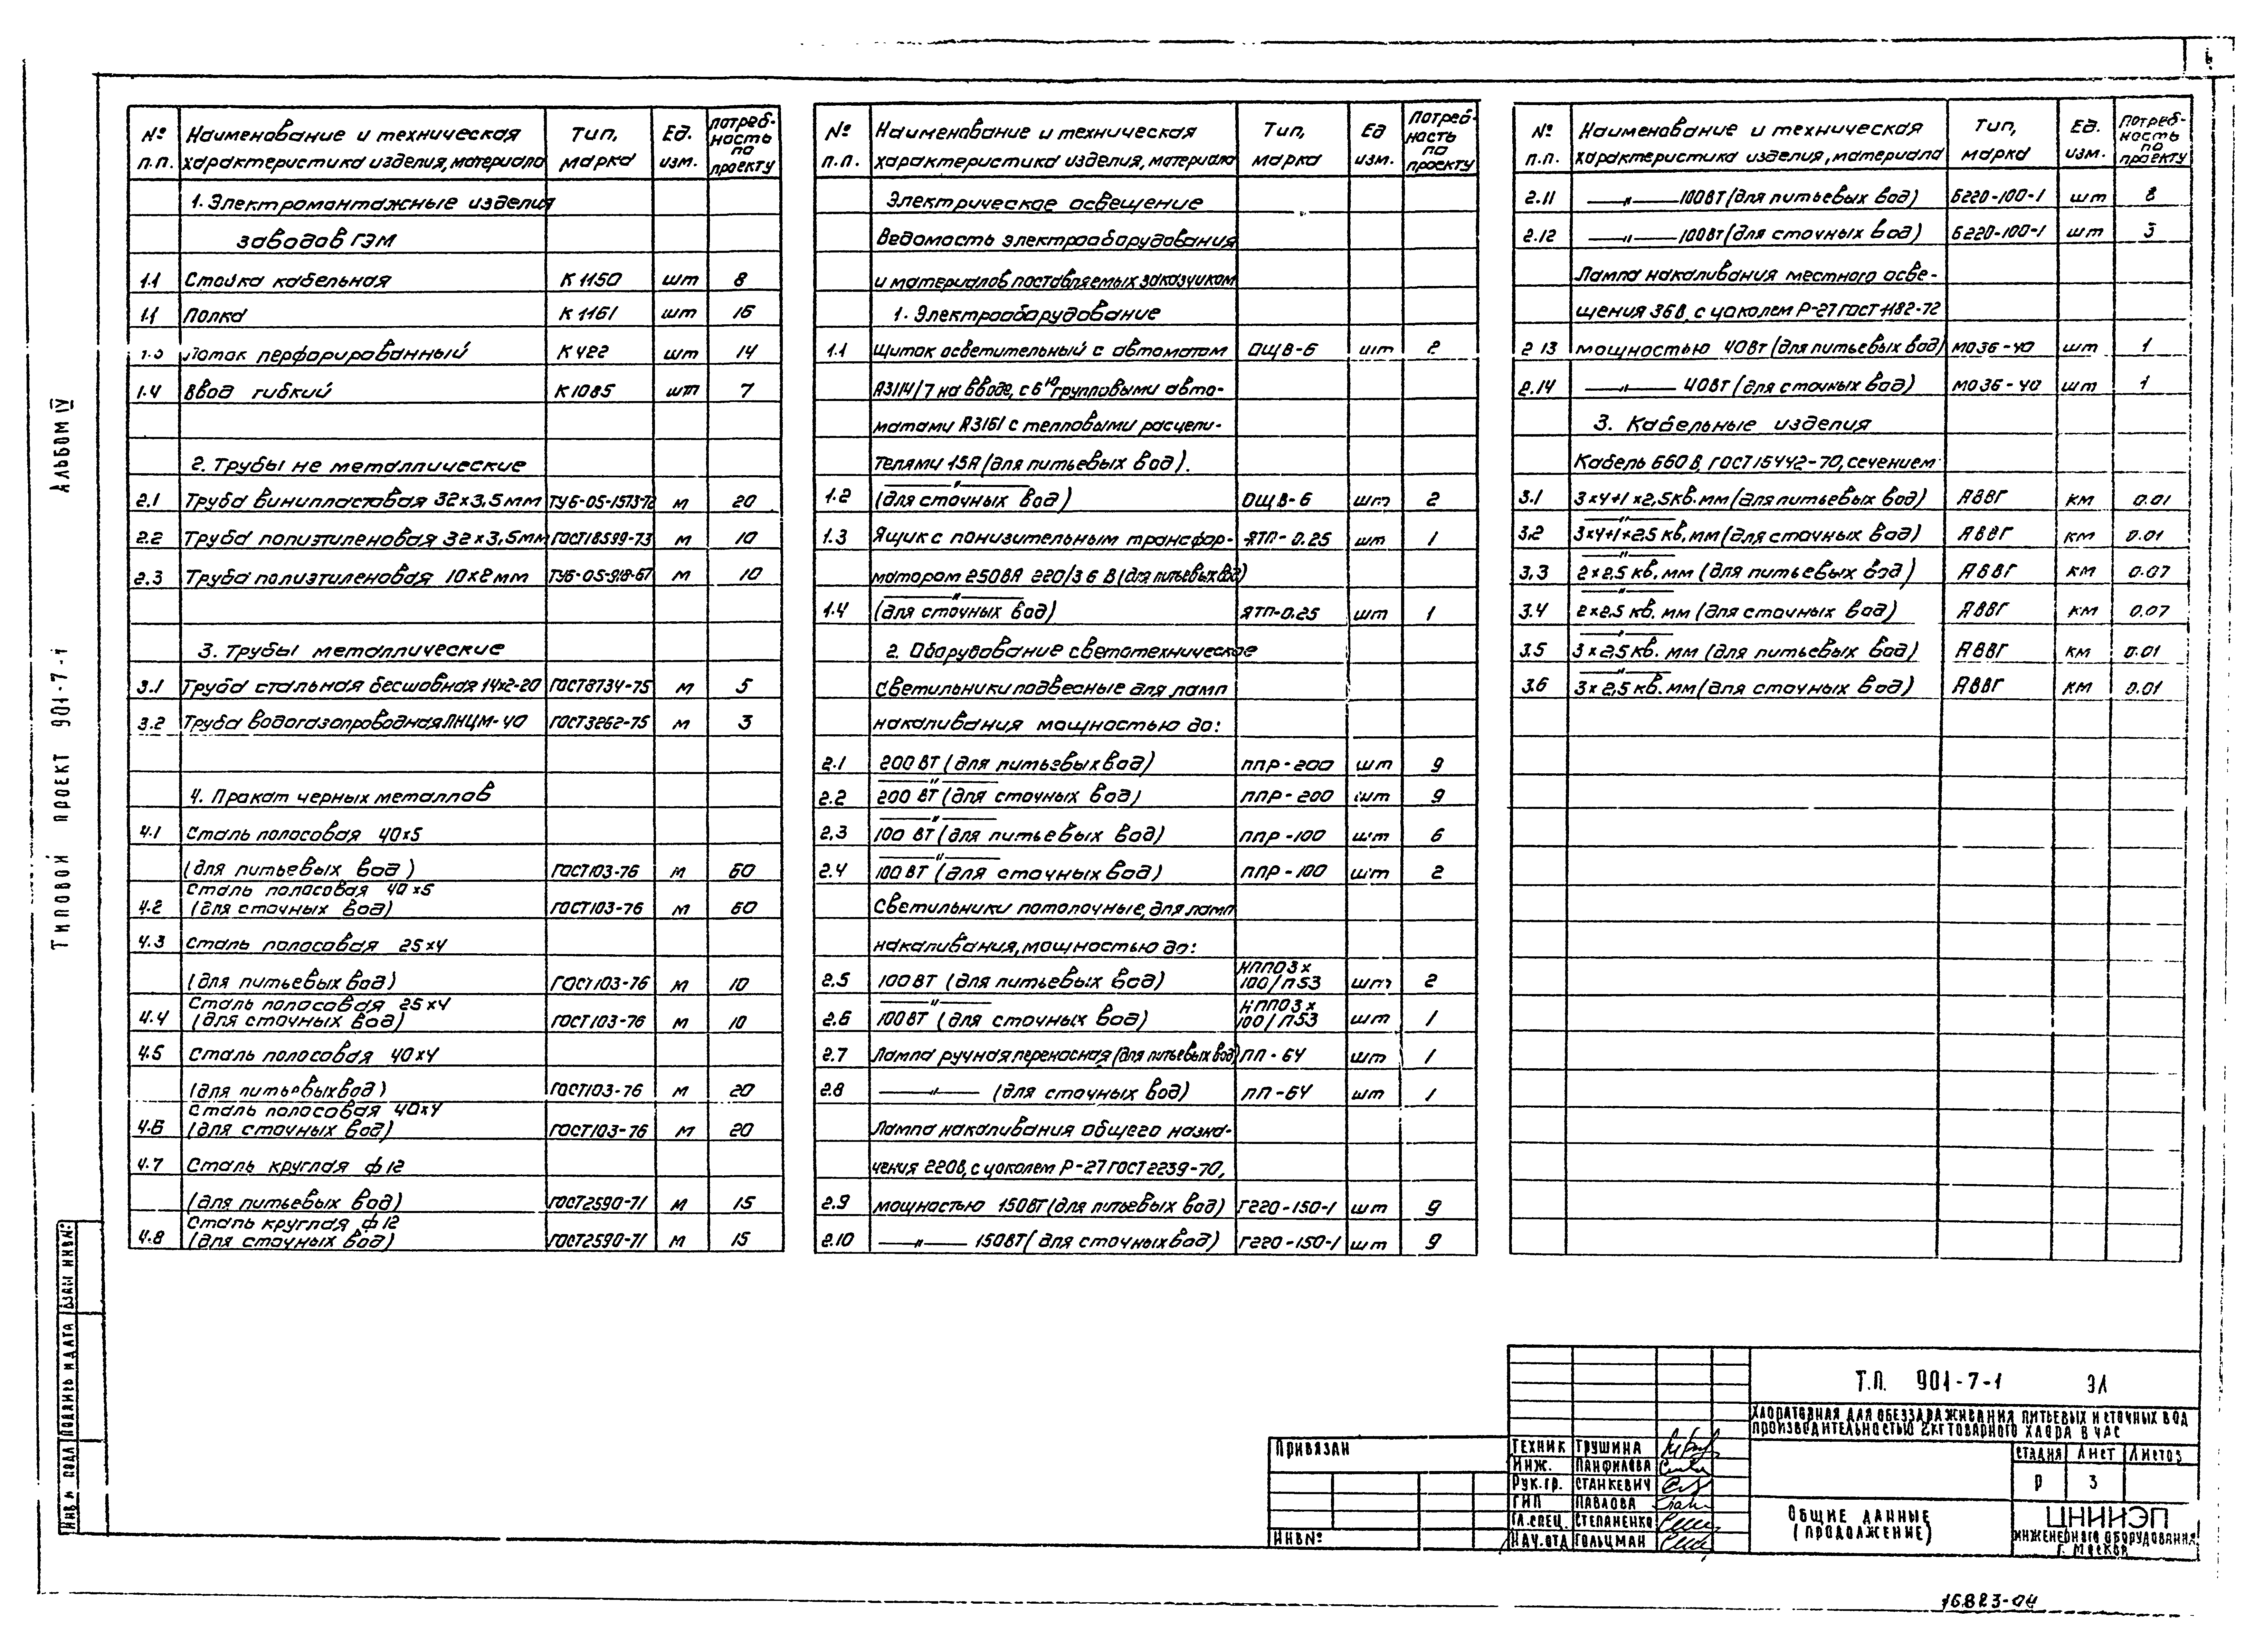 Альбом IV
Типовой проект 901-7-1
№ п.п. Наименование и техническая характеристика изделия, материала Тип, марка Ед. изм. Потребность по проекту
1. Электромонтажные изделия
заводов ГЭМ
1.1 Стойка кабельная К 1150 шт 8
1.1 Полка К 1161 шт 16
Лоток перфорированный К 422 шт 14
1.4 Ввод гибкий К 1085 шт 7
2. Трубы не металлические
2.1 Труба винипластовая 32×3,5мм ТУ6-05-1573-72 м 20
2.2 Труба полиэтиленовая 32×3,5мм ГОСТ18599-73 м 10
2.3 Труба полиэтиленовая 10×2мм ТУ6-05-918-67 м 10
3. Трубы металлические
3.1 Труба стальная бесшовная 14×2-20 ГОСТ8734-75 м 5
3.2 Труба водогазопроводная ЛНЦМ-40 ГОСТ3262-75 м 3
4. Прокат черных металлов
4.1 Сталь полосовая 40×5
(для питьевых вод) ГОСТ103-76 м 60
Сталь полосовая 40×5
4.2 (для сточных вод) ГОСТ103-76 м 60
4.3 Сталь полосовая 25×4
(для питьевых вод) ГОСТ103-76 м 10
Сталь полосовая 25×4
4.4 (для сточных вод) ГОСТ103-76 м 10
4.5 Сталь полосовая 40×4
(для питьевых вод) ГОСТ103-76 м 20
Сталь полосовая 40×4
4.6 (для сточных вод) ГОСТ103-76 м 20
4.7 Сталь круглая ф12
(для питьевых вод) ГОСТ2590-71 м 15
Сталь круглая ф12
4.8 (для сточных вод) ГОСТ2590-71 м 15
№ п.п. Наименование и техническая характеристика изделия, материала Тип, марка Ед изм. Потребность по проекту
Электрическое освещение
Ведомость электрооборудования
и материалов поставляемых заказчиком
1. Электрооборудование
1.1 Щиток осветительный с автоматом ОЩВ-6 шт 2
А3114/7 на вводе, с 6ю групповыми авто-
матами А3161 с тепловыми расцепи-
телями 15А (для питьевых вод).
1.2 —"— (для сточных вод) ОЩВ-6 шт 2
1.3 Ящик с понизительным трансфор- ЯТП-0.25 шт 1
матором 250ВА 220/36 В (для питьевых вод)
1.4 —"— (для сточных вод) ЯТП-0.25 шт 1
2. Оборудование светотехническое
Светильники подвесные для ламп
накаливания мощностью до:
2.1 200 ВТ (для питьевых вод) ППР-200 шт 9
2.2 —"— 200 ВТ (для сточных вод) ППР-200 шт 9
2.3 —"— 100 ВТ (для питьевых вод) ППР-100 шт 6
2.4 —"— 100 ВТ (для сточных вод) ППР-100 шт 2
Светильники потолочные, для ламп
накаливания, мощностью до:
2.5 100 ВТ (для питьевых вод) НПП03×100/П53 шт 2
2.6 —"— 100 ВТ (для сточных вод) НПП03×100/П53 шт 1
2.7 Лампа ручная переносная (для питьевых вод) ПП-64 шт 1
2.8 —"— (для сточных вод) ПП-64 шт 1
Лампа накаливания общего назна-
чения 220В, с цоколем Р-27 ГОСТ 2239-70,
2.9 мощностью 150ВТ (для питьевых вод) Г220-150-1 шт 9
2.10 —"— 150ВТ (для сточных вод) Г220-150-1 шт 9
№ п.п. Наименование и техническая характеристика изделия, материала Тип, марка Ед. изм. Потребность по проекту
2.11 —"— 100ВТ (для питьевых вод) Б220-100-1 шт 8
2.12 —"— 100Вт (для сточных вод) Б220-100-1 шт 3
Лампа накаливания местного осве-
щения 36В, с цоколем Р-27 ГОСТ 1182-72
2 13 мощностью 40Вт (для питьевых вод) МО36-40 шт 1
2.14 —"— 40Вт (для сточных вод) МО36-40 шт 1
3. Кабельные изделия
Кабель 660 В, ГОСТ 16442-70, сечением
3.1 3×4+1×2,5кв.мм (для питьевых вод) АВВГ км 0.01
3.2 —"— 3×4+1×2.5 кв. мм (для сточных вод) АВВГ км 0.01
3.3 —"— 2×2.5 кв. мм (для питьевых вод) АВВГ км 0.07
3.4 —"— 2×2.5 кв. мм (для сточных вод) АВВГ км 0.07
3.5 —"— 3×2.5 кв. мм (для питьевых вод) АВВГ км 0.01
3.6 —"— 3×2,5 кв. мм (для сточных вод) АВВГ км 0.01
Инв № подл Подпись и дата Взам инв№
Привязан
Инв№:
Техник Трушина
Инж. Панфилова
Рук.гр. Станкевич
ГИП Павлова
Гл.спец. Степаненко
Нач.отд Гольцман
Т.П. 901-7-1 ЭЛ
Хлораторная для обеззараживания питьевых и сточных вод
производительностью 2кг товарного хлора в час
Стадия Лист Листов
Р 3
Общие данные
(продолжение)
ЦНИИЭП
инженерного оборудования
г. Москва
16823-04